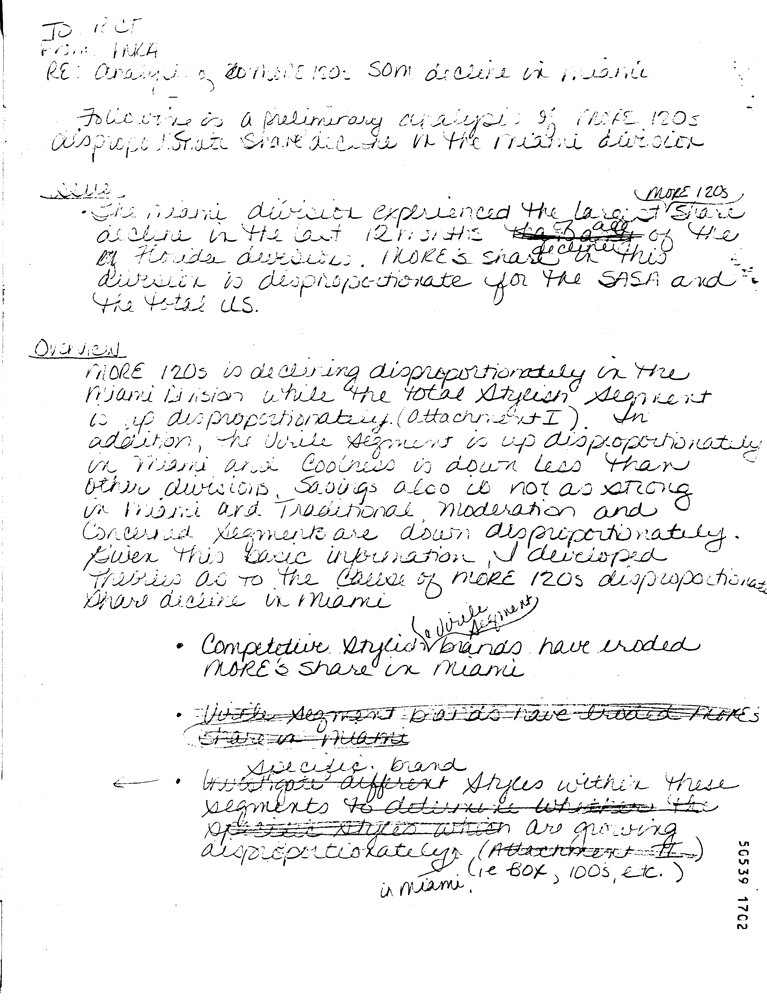 TO: RCT
From: INKA
RE: Analysis of MORE 120s SOM decline in Miami
Following is a preliminary analysis of MORE 120s
disproportionate share decline in the Miami division
Issue
MORE 120s
• The Miami division experienced the largest share
decline in the last 12 months of all of the
Florida divisions. MORE's share decline in this
division is disproportionate for the SASA and
the total US.
Overview
MORE 120s is declining disproportionately in the
Miami Division while the total Stylish Segment
is up disproportionately. (Attachment I). In
addition, the Virile Segment is up disproportionately
in Miami and Coolness is down less than
other divisions. Savings also is not as strong
in Miami and Traditional, Moderation and
Concerned Segments are down disproportionately.
Given this basic information, I developed
theories as to the cause of MORE 120s disproportionate
share decline in Miami
& Virile Segment
• Competitive Stylish brands have eroded
MORE's share in Miami
• Virile Segment brands have eroded MORE's
share in Miami
specific brand
• Investigate different styles within these
segments to determine whether the
specific styles which are growing
disproportionately, (Attachment II)
(ie BOX, 100s, etc.)
in Miami.
50539 1702